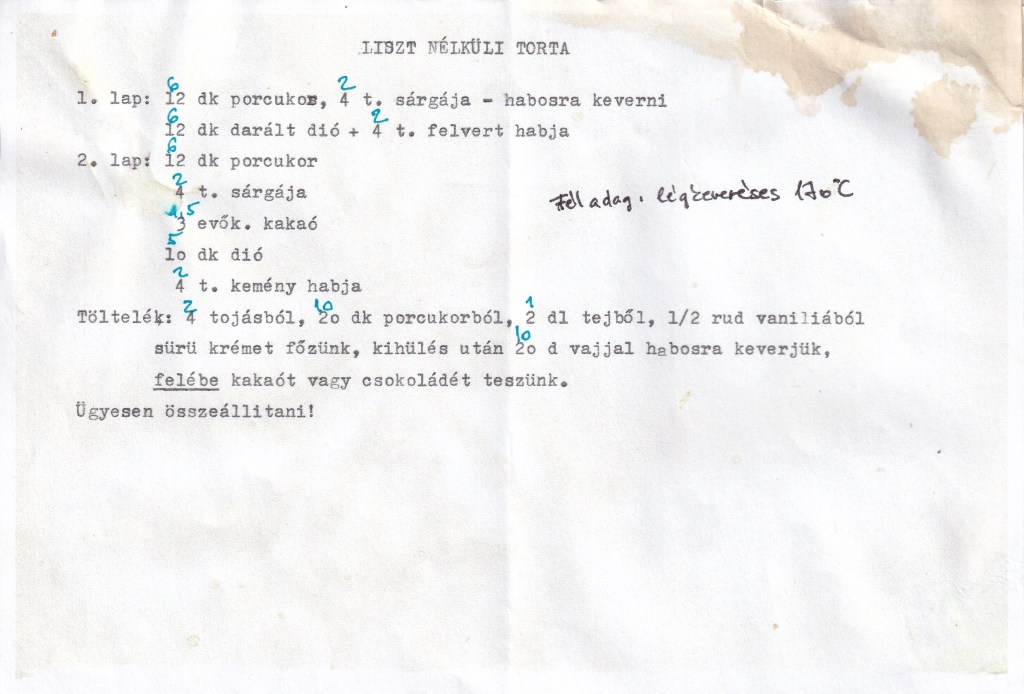 LISZT NÉLKÜLI TORTA
6 2
1. lap: 12 dk porcukor, 4 t. sárgája - habosra keverni
6 2
12 dk darált dió + 4 t. felvert habja
6
2. lap: 12 dk porcukor
2
4 t. sárgája
Fél adag. légkeveréses 170°C
1,5
3 evők. kakaó
5
1o dk dió
2
4 t. kemény habja
2 10 1
Töltelék: 4 tojásból, 2o dk porcukorból, 2 dl tejből, 1/2 rud vaniliából
10
sürü krémet főzünk, kihülés után 2o d vajjal habosra keverjük,
felébe kakaót vagy csokoládét teszünk.
Ügyesen összeállitani!